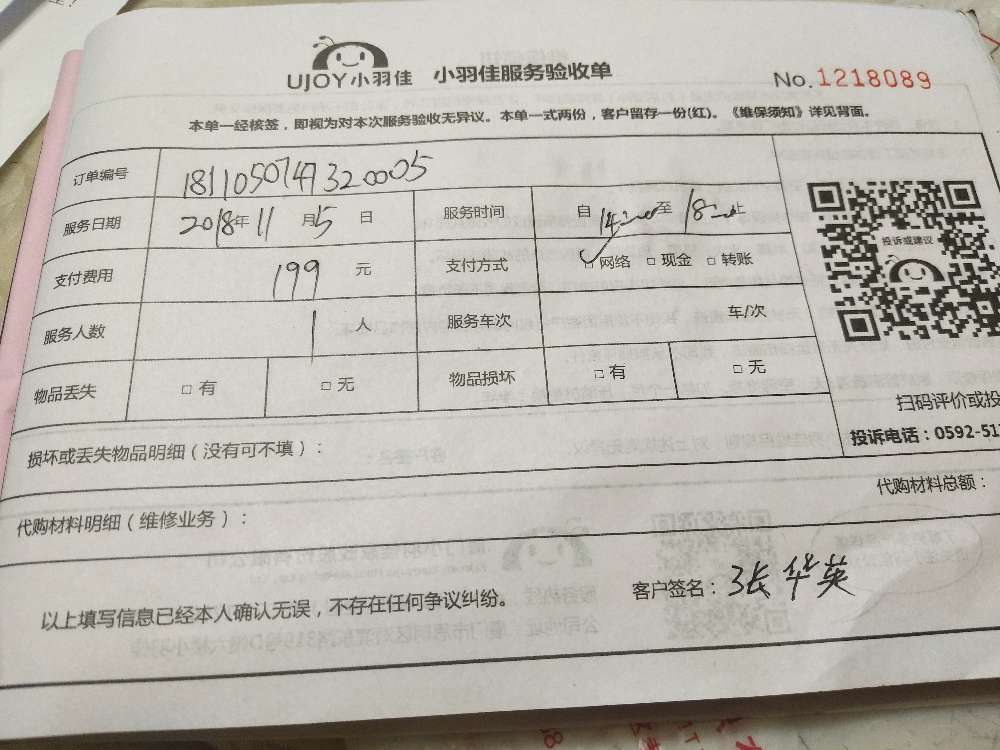 UJOY小羽佳 小羽佳服务验收单 No.1218089
本单一经核签，即视为对本次服务验收无异议。本单一式两份，客户留存一份(红)。《维保须知》详见背面。
订单编号 1811050747320005
服务日期 2018年11月5日 服务时间 自14:00至18:00止
支付费用 199元 支付方式 ☑网络 □现金 □转账
投诉或建议
服务人数 1人 服务车次 车/次
物品丢失 □有 □无 物品损坏 □有 □无
扫码评价或投
投诉电话：0592-51
损坏或丢失物品明细（没有可不填）：
代购材料总额：
代购材料明细（维修业务）：
以上填写信息已经本人确认无误，不存在任何争议纠纷。 客户签名：张华英